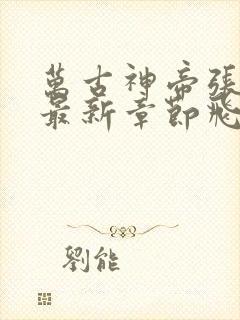 萬古神帝張
最新章節飛
劉能